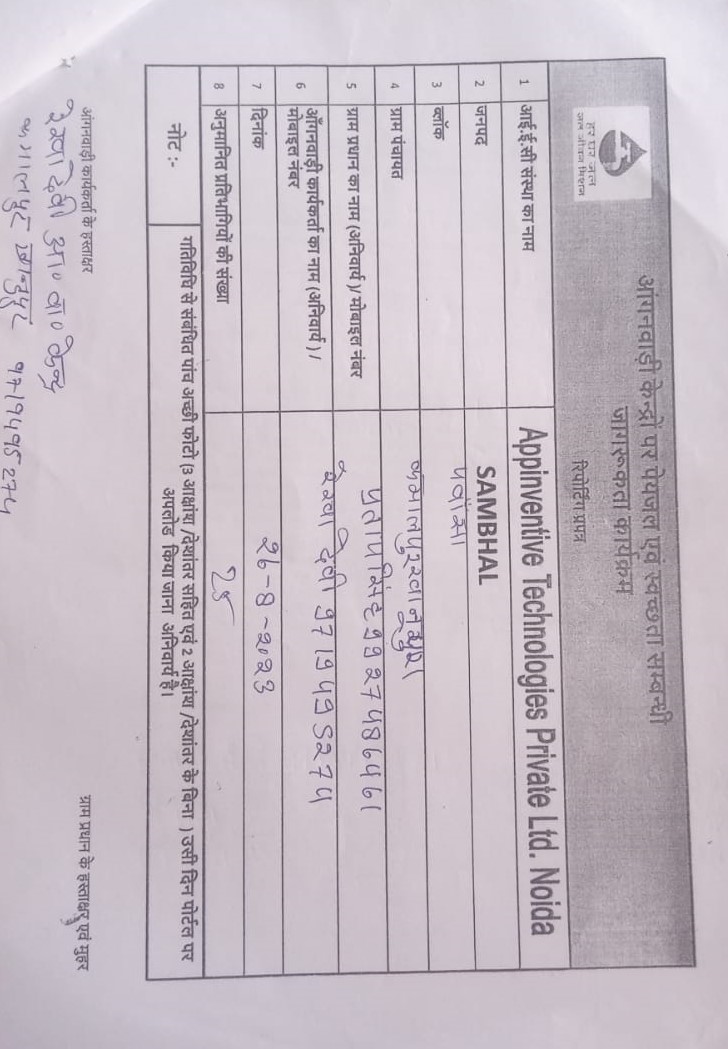 हर घर जल
जल जीवन मिशन
आंगनवाड़ी केन्द्रों पर पेयजल एवं स्वच्छता सम्बन्धी
जागरूकता कार्यक्रम
रिपोर्टिंग प्रपत्र
1 आई.ई.सी संस्था का नाम Appinventive Technologies Private Ltd. Noida
2 जनपद SAMBHAL
3 ब्लॉक पवाँसा
4 ग्राम पंचायत
5 ग्राम प्रधान का नाम (अनिवार्य)/ मोबाइल नंबर प्रताप सिंह
6 आँगनवाड़ी कार्यकर्ता का नाम (अनिवार्य) /
मोबाइल नंबर रेखा देवी 9719495274
7 दिनांक 26-8-2023
8 अनुमानित प्रतिभागियों की संख्या 25
नोट :-
गतिविधि से संबंधित पांच अच्छी फोटो (3 आक्षांय /देयांतर सहित एवं 2 आक्षांय /देयांतर के बिना ) उसी दिन पोर्टल पर
अपलोड किया जाना अनिवार्य है।
आंगनवाड़ी कार्यकर्ता के हस्ताक्षर
ग्राम प्रधान के हस्ताक्षर एवं मुहर
रेखा देवी आ० बा० केन्द्र
9719495274